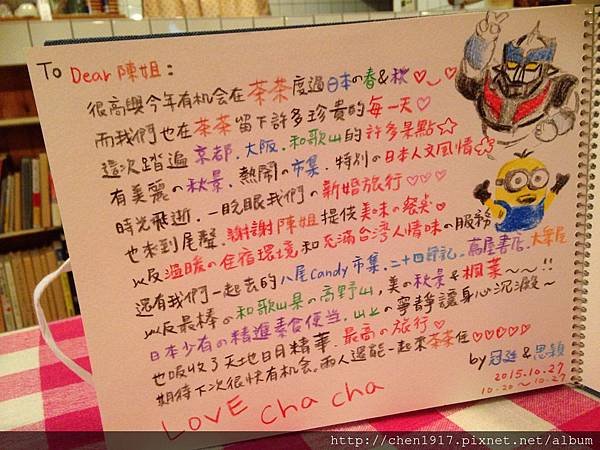 To Dear 陳姐：
很高興今年有机会在茶茶度過日本の春&秋♡‿♡
而我們也在茶茶留下許多珍貴的每一天♡
這次踏遍京都.大阪.和歌山的許多景點☆
有美麗の秋景.熱鬧の市集.特別の日本人文風情☆
時光飛逝.一眨眼我們の新婚旅行♡♡♡
也來到尾聲.謝謝陳姐提供美味の餐桌♡
以及溫暖の住宿環境和充滿台灣人情味の服務
還有我們一起去的八尾Candy市集.二十四節記.蔦屋書店.大茶屋
以及最棒の和歌山县の高野山,美の秋景&楓葉～～!!
日本少有の精進素食便当.山上の寧靜讓身心沉澱～
也吸收了天地日月精華.最高の旅行♡
期待下次很快有机会.兩人還能一起來茶茶住♡♡♡♡♡
by 冠廷&思穎
2015.10.27
10.20～10.27
LOVE cha cha
http://chen1917.pixnet.net/album